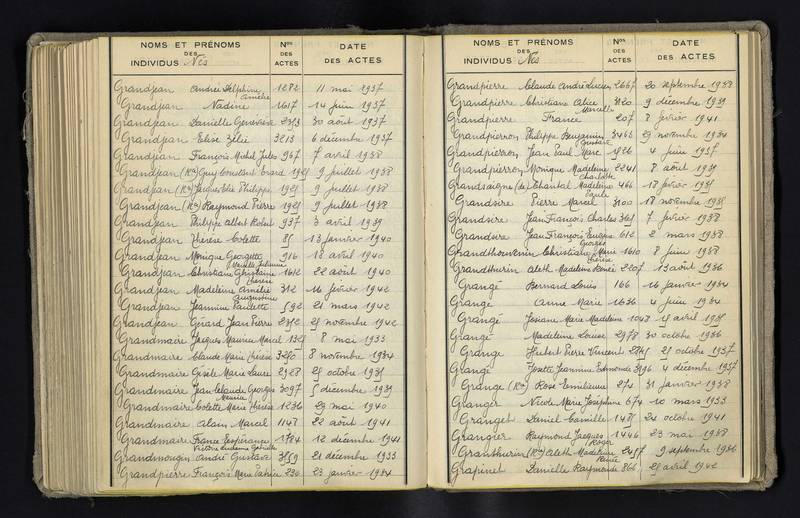 NOMS ET PRÉNOMS
DES
INDIVIDUS Nés
Nos
DES
ACTES
DATE
DES ACTES
Grandjean André Delphine Amélie 1282 11 mai 1937
Grandjean Nadine 1617 14 juin 1937
Grandjean Danielle Geneviève 2313 30 août 1937
Grandjean Elise Zélie 3213 6 décembre 1937
Grandjean François Michel Jules 967 7 avril 1938
Grandjean (Ron) Guy Constant 1925 9 juillet 1938
Grandjean (Ron) Philippe 1925 9 juillet 1938
Grandjean (Ron) Raymond Pierre 1925 9 juillet 1938
Grandjean Philippe Albert Robert 937 3 avril 1939
Grandjean Thérèse Colette 85 13 janvier 1940
Grandjean Monique Georgette 916 18 avril 1940
Grandjean Christiane Ghislaine Thérèse 1612 22 août 1940
Grandjean Madeleine Amélie Augustine 312 16 février 1942
Grandjean Jeannine Paulette 592 21 mars 1942
Grandjean Gérard Jean Pierre 2352 25 novembre 1942
Grandmaire Jacques Maurice Marcel 1325 8 mai 1933
Grandmaire Claude Marie Thérèse 3250 8 novembre 1934
Grandmaire Gisèle Marie Laure 2928 25 octobre 1935
Grandmaire Jean Claude Georges Maurice 3097 5 décembre 1939
Grandmaire Colette Marie Thérèse 1236 29 mai 1940
Grandmaire Alain Marcel 1147 22 août 1941
Grandmaire France Espérance 1784 12 décembre 1941
Grandmougin André Gustave 3559 21 décembre 1933
Grandpierre François Marie Patrice 230 23 janvier 1934
NOMS ET PRÉNOMS
DES
INDIVIDUS Nés
Nos
DES
ACTES
DATE
DES ACTES
Grandpierre Claude André Lucien 2667 20 septembre 1938
Grandpierre Christiane Alice Marcelle 3120 9 décembre 1939
Grandpierre France 207 8 février 1941
Grandpierron Philippe Benjamin Gustave 3465 29 novembre 1934
Grandpierron Jean Paul Marc 1526 4 juin 1937
Grandpierron Monique Madeleine Charlotte 2241 8 août 1939
Grandsaigne (de) Chantal Madeleine Paule 466 18 février 1935
Grandsire Pierre Marcel 3100 18 novembre 1935
Grandsire Jean François Charles 365 7 février 1938
Grandsire Jean François Eugène Georges 612 2 mars 1938
Grandthouvenin Christiane Marie Thérèse 1610 8 juin 1938
Grandthurin Aleth Madeleine Renée 2207 13 août 1936
Grangé Bernard Louis 166 16 janvier 1934
Grangé Anne Marie 1636 4 juin 1934
Grangé Josiane Marie Madeleine 1043 15 avril 1935
Grangé Madeleine Louise 2978 30 octobre 1936
Grangé Hubert Pierre Vincent 2825 25 octobre 1937
Grangé Josette Jeannine Esmonde 3196 4 décembre 1937
Grangé (Ron) Rose Emilienne 274 31 janvier 1938
Granger Nicole Marie Joséphine 674 10 mars 1933
Granget Daniel Camille 1485 24 octobre 1941
Grangier Raymond Jacques Roger 1446 23 mai 1938
Granthurin (Ron) Aleth Madeleine Renée 2457 9 septembre 1936
Grapinet Danielle Raymonde 866 25 avril 1942